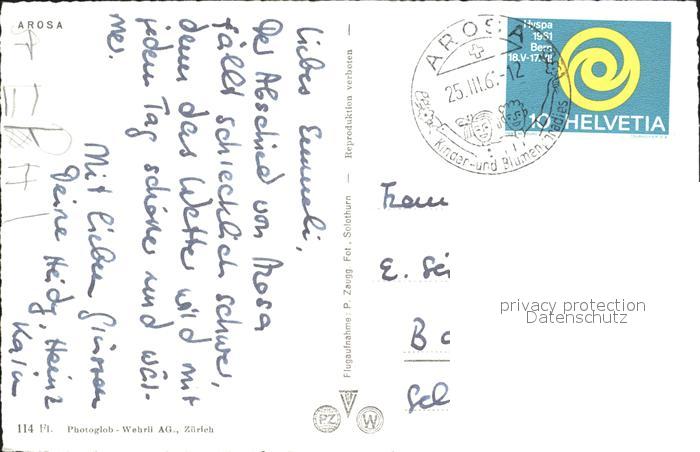 AROSA
Liebes Emmeli,
Der Abschied von Arosa
fällt schrecklich schwer,
denn das Wetter wird mit
jedem Tag schöner und wär-
mer.
Mit lieben Grüssen
Deine Heidy, Heinz
114 Fl. Photoglob - Wehrli AG., Zürich
Flugaufnahme: P. Zaugg. Fot., Solothurn — Reproduktion verboten —
PZ W
AROSA
25.III.6 -12
Kinder- und Blumen
Hyspa
1961
Bern
18.V-17.VII
10 HELVETIA
Frau
E.
privacy protection
Datenschutz